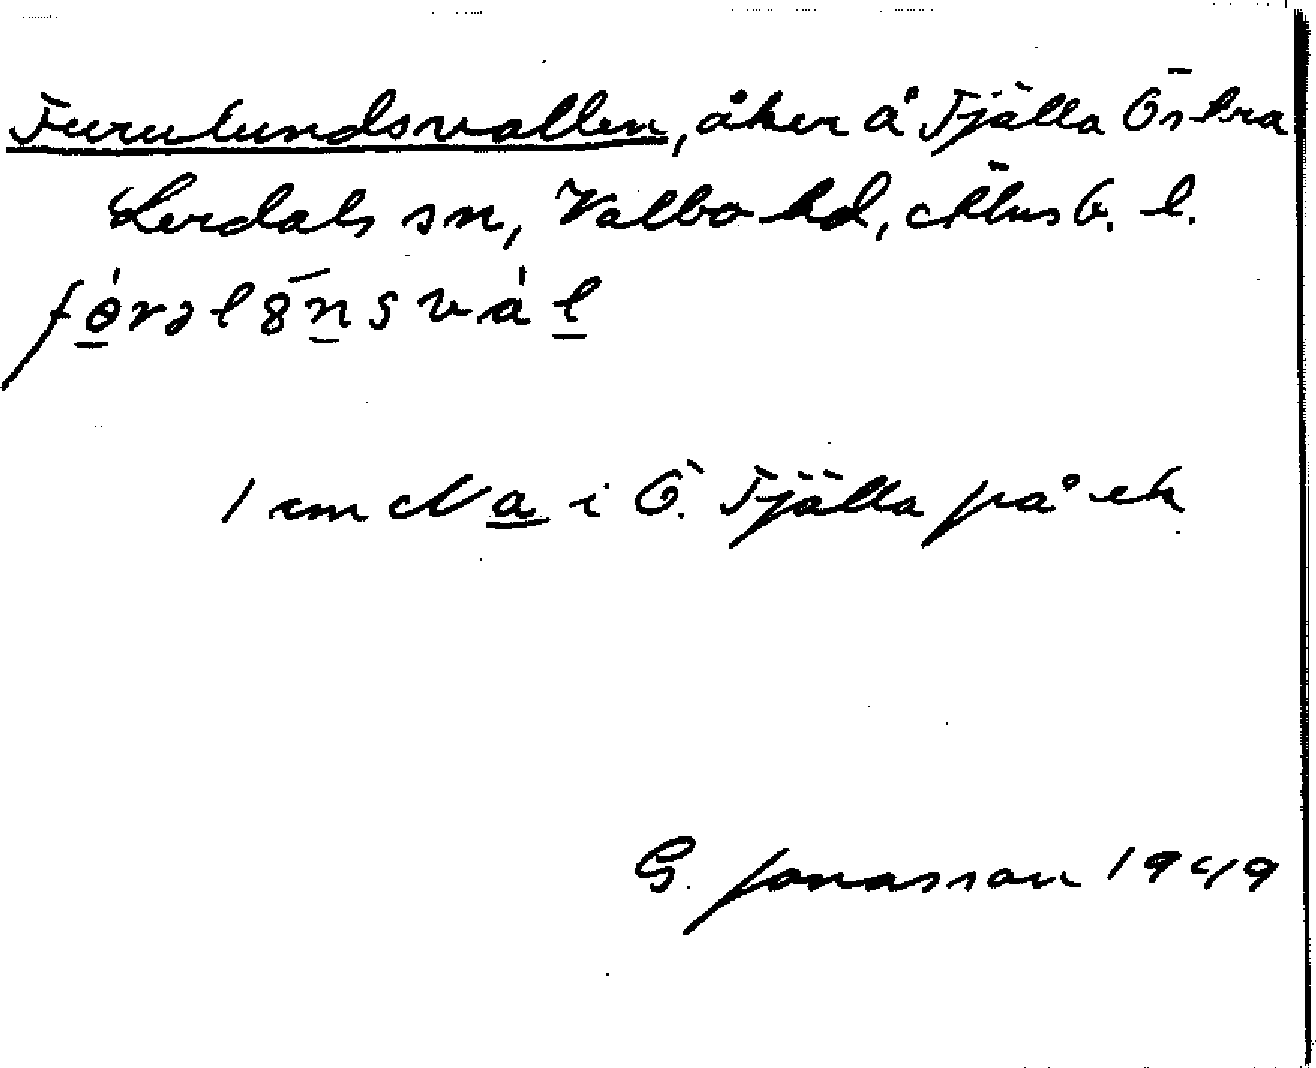 Furulundsvallen, åker å Fjälla Östra
Lerdals sn, Valbo hd, Älvsb. l.
1 cm N a i Ö. Fjälla på ek
G. Jonasson 1949